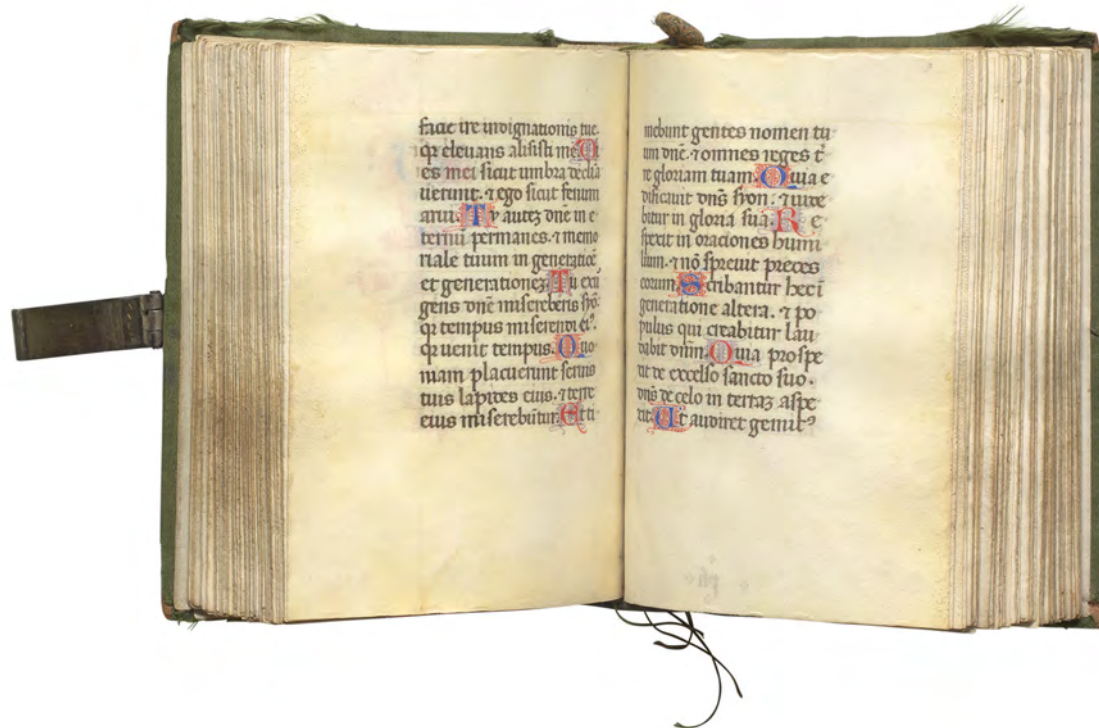 facie ire indignationis tue.
qr eleuans alisisti me. Di
es mei sicut umbra declia
uerunt. ⁊ ego sicut fenum
arui. Tu autez dne in e
ternu permanes. ⁊ memo
riale tuum in generatioe
et generationez. Tu exu
gens dne misereberis syo.
qr tempus miserendi ei⁹.
qr uenit tempus. Quo
niam placuerunt seruis
tuis lapides eius. ⁊ terre
eius miserebutur. Et ti
mebunt gentes nomen tu
um dne. ⁊ omnes reges t̄
re gloriam tuam. Quia e
dificauit dns syon. ⁊ uide
bitur in gloria sua. Re
spexit in orationes humi
lium. ⁊ nō spreuit preces
eorum. Scribantur hec ī
generatione altera. ⁊ po
pulus qui creabitur lau
dabit dnm. Quia prospe
xit de excelso sancto suo.
dns de celo in terraz aspe
xit. Ut audiret gemit⁹